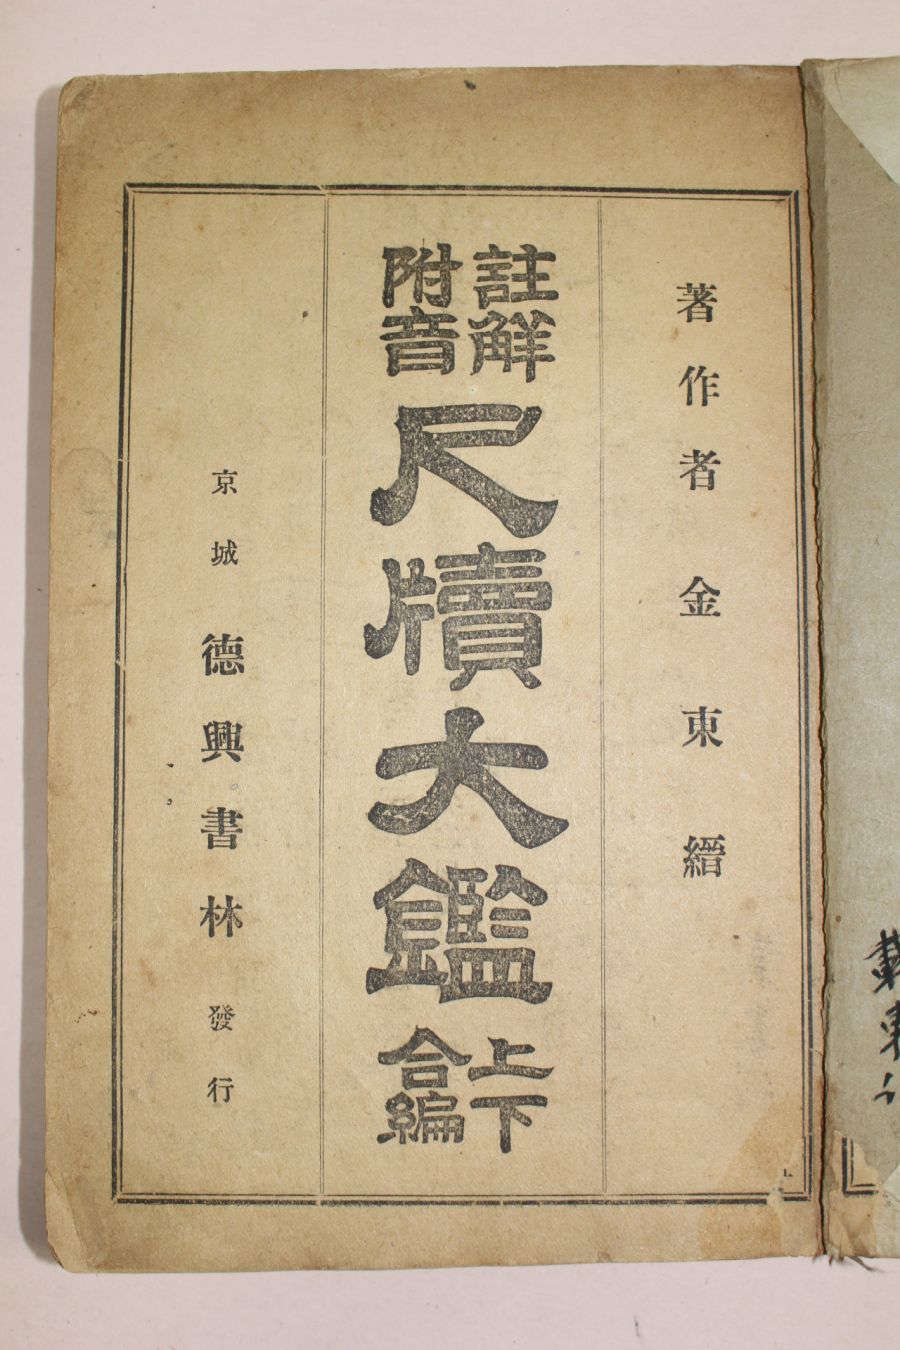 著作者 金東縉
註解
附音
尺牘大鑑
上下
合編
京城 德興書林 發行